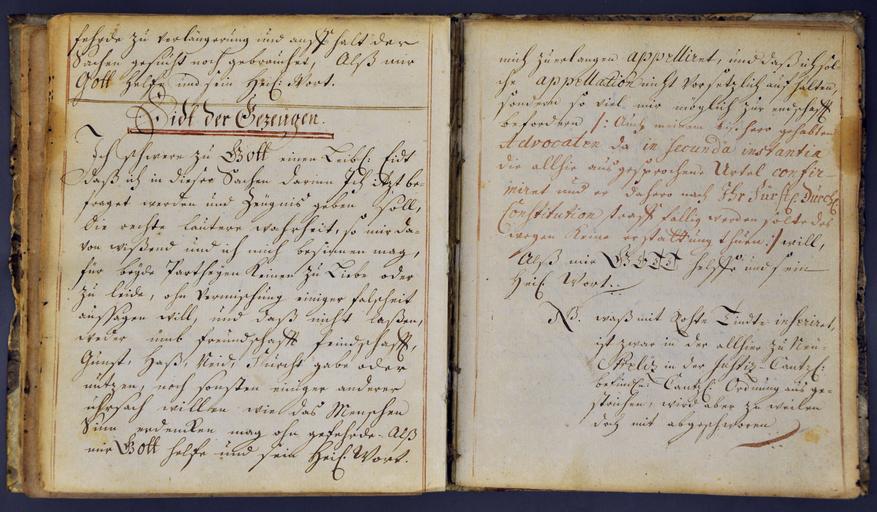 fehrde zu verlängerung und auffhalt der
Sachen gesucht noch gebrauchet, Alß mir
Gott helffe und sein Heil. Wort.
Eidt der Gezeugen.
Ich schwere zu Gott einen Leibl. Eidt
daß ich in dieser Sachen darinn Ich itzt be-
fraget werden und Zeugnis geben soll,
die rechte lautere wahrheit, so mir da-
von wißend und ich mich besinnen mag,
für beyde Partheyen keinen zu Liebe oder
zu leide, ohn Vermischung einiger falscheit
aussagen will, und daß nicht laßen,
weder umb freundschafft feindschafft,
Gunst, Haß, Neid, Furcht gabe oder
nutzen, noch sonsten einiger anderer
uhrsach willen, wie das Menschen
Sinn erdencken mag ohn gefehrde. Alß
mir Gott helffe und sein Heil. Wort.
mich zuerlangen appelliret, und daß ich sol
che appellation nicht vorsetzlich auffhalten,
sondern so viel mir möglich zur endschafft
befordern /: Auch meinem bishero gehabten
Advocaten da in secunda instantia
die allhie ausgesprochene Urtel confir-
miret und er dahero nach Ihr Fürstl. Durchl.
Constitution straff fällig werden solte des
wegen keine erstattung thuen :/ will,
Alß mir GOTT helffe und sein
Heil. Wort.
NB. waß mit Rohte Tindte inseriret,
ist zwar in der allhier zu Neu-
Strelitz in der Justiz-Cantzl:
befindl. Cantzl. Ordnung ausge-
strichen, wird aber zu weilen
doch mit abgeschworen